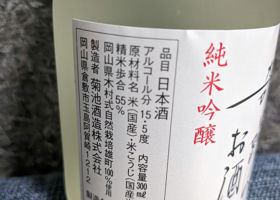 品目 日本酒
アルコール分 15.5度 内容量 300ml
原材料名 米(国産)・米こうじ(国産
精米歩合 55%
岡山県木村式自然栽培雄町100%使用
製造者 菊池酒造株式会社
岡山県倉敷市玉島阿賀崎1212
純米吟醸
お酒